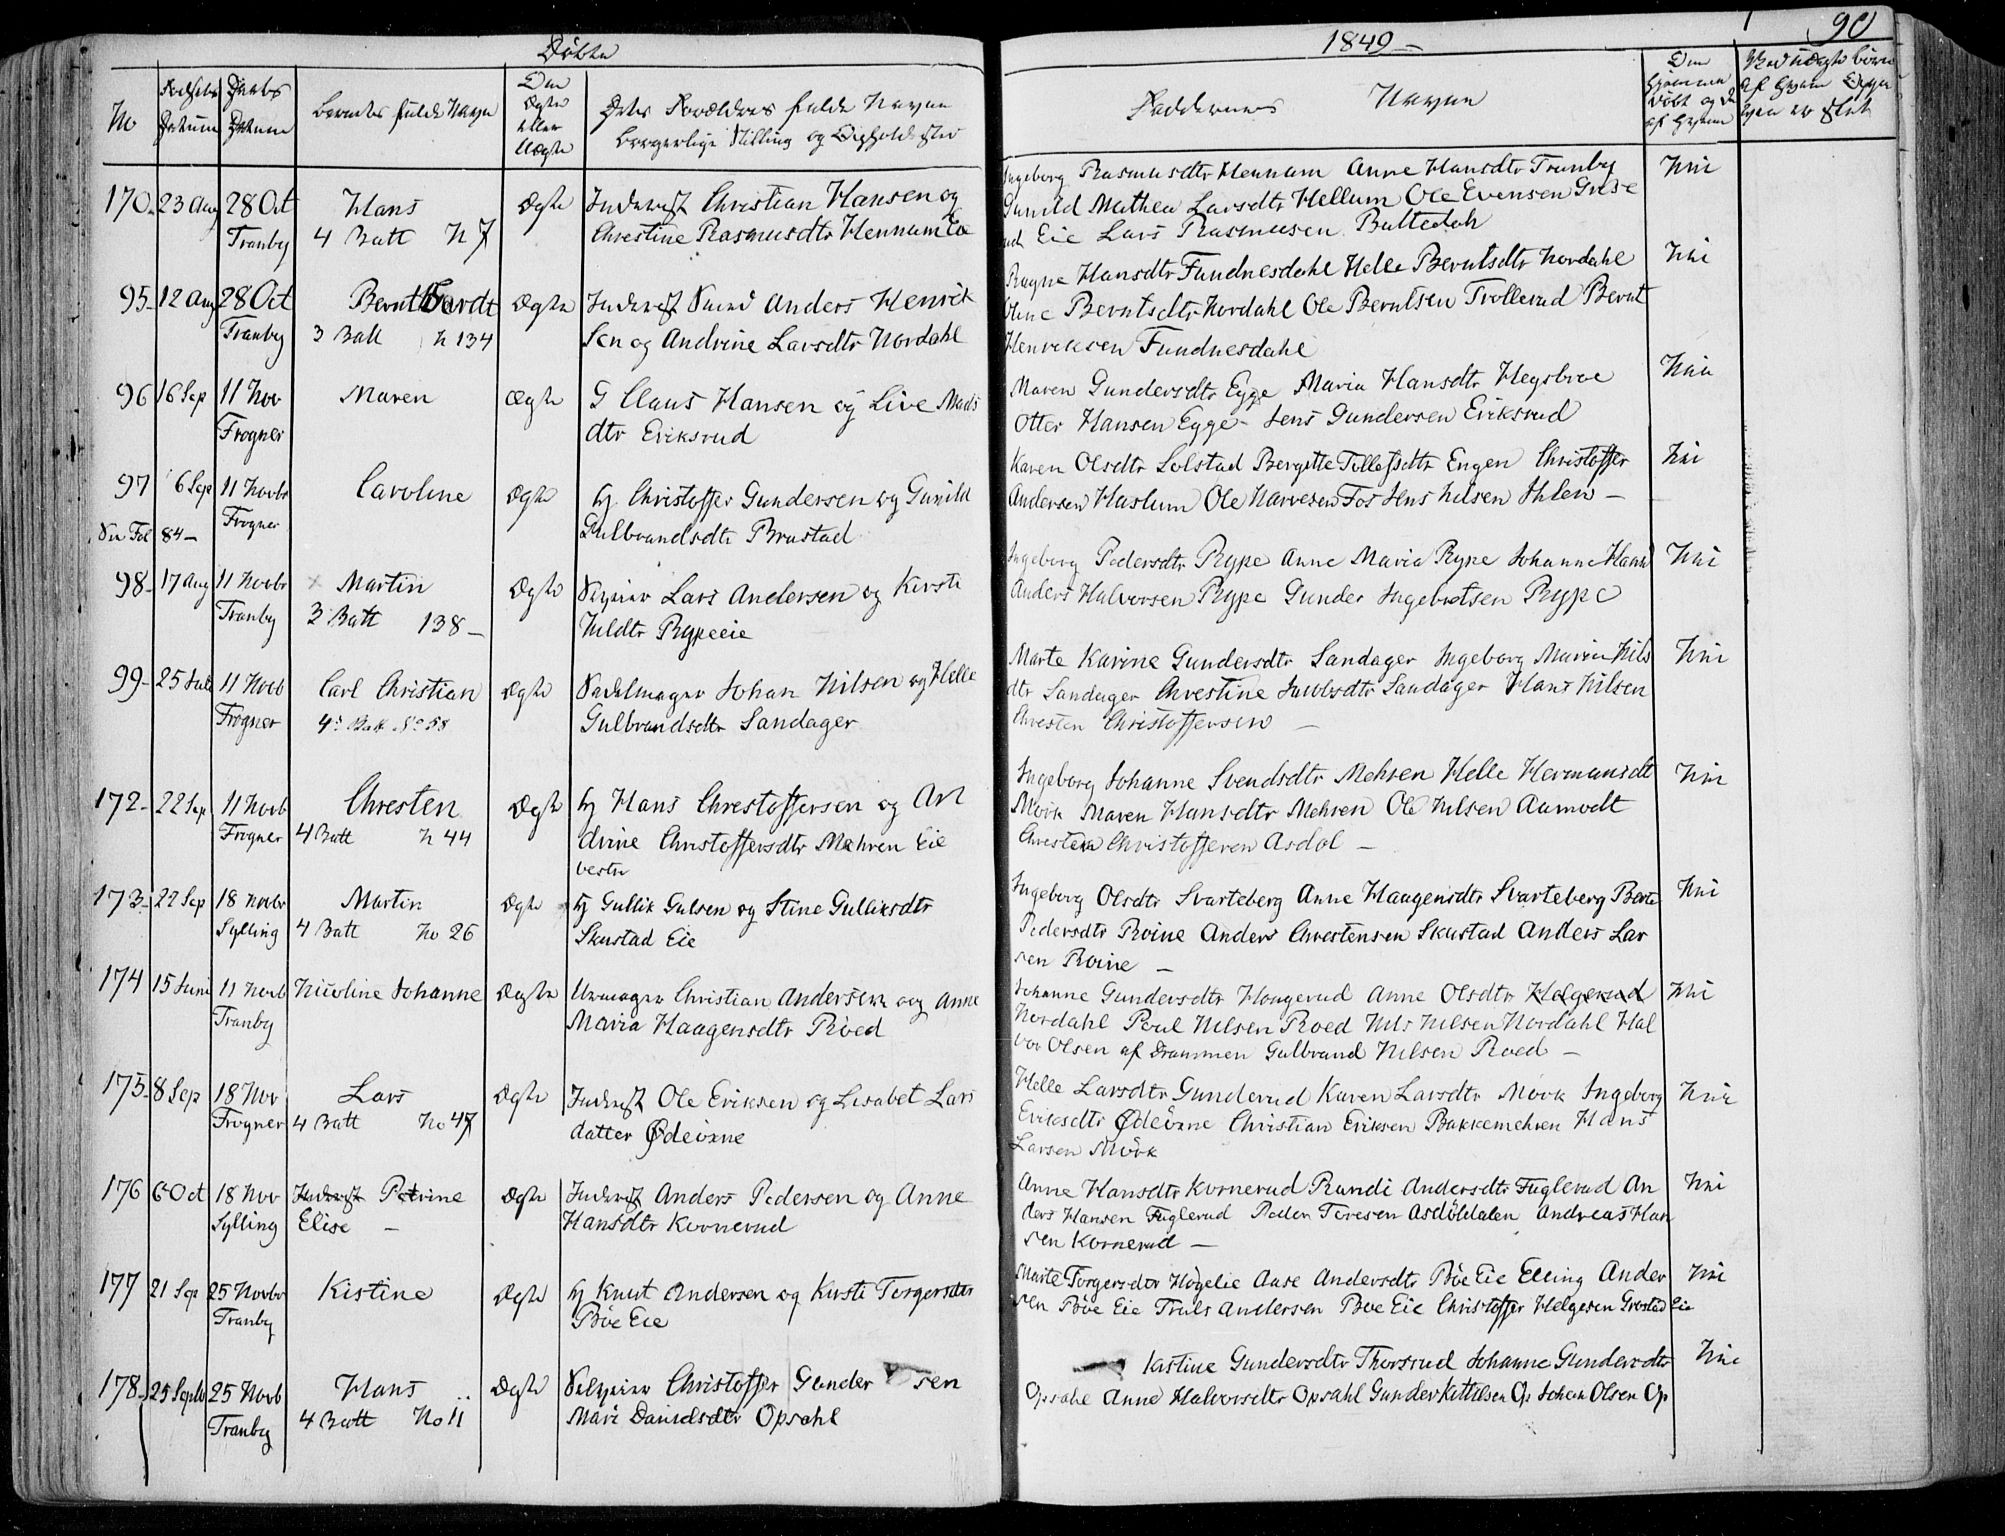 Døbte
1849 –
90
No
Fødsels Datum
Daabs Datum
Barnets fulde Navn
Om Ægte eller Uægte
Dets Forældres fulde Navne
Borgerlige Stilling og Opholdssted
Faddernes Navne
Om hjemme døbt og
170. 23 Aug 28 Oct Hans Ægte Inderst Christian Hansen og
Tranby 4 Batt N 7 Christine Rasmusdtr Hennum Eie
Ingeborg Rasmusdtr Hennum Anne Hansdtr Tranby Nei
Gunild Mathea Larsdtr Hellum Ole Evensen
Eie Lars Rasmussen
95. 12 Aug 28 Oct Bernt Ægte Inderst Smed Anders Henrik
Tranby 3 Batt N 134 Sen og Andrine Larsdtr Nordahl
Ragne Hansdtr Fundnesdahl Helle Berntsdtr Nordahl Nei
Oline Berntsdtr Nordahl Ole Berntsen Trollerud Bernt
Henriksen Fundnesdahl
96 16 Sep 11 Nov Maren Ægte G Claus Hansen og Live Mads
Frogner dtr Eriksrud
Maren Gundersdtr Egge Maria Hansdtr Hegsbroe Nei
Otter Hansen Egge – Jens Gundersen Eriksrud
97 6 Sep 11 Novbr Caroline Ægte Hj Christoffer Gundersen og Gunild
Frogner Gulbrandsdtr Brustad
Fol 84 –
Karen Olsdtr Solstad Bergitte Tollefsdtr Engen Christoffer Nei
Andersen Haslum Ole Narvesen Fos Jens Nilsen Ihlen –
98. 17 Aug 11 Novbr Martin Ægte Selveier Lars Andersen og Kirsti
Tranby 3 Batt 138 – Nilsdtr Rypeeie
Ingeborg Pedersdtr Rype Anne Maria Rype Johanne Nei
Anders Halvorsen Rype Gunder Ingebretsen Rype
99. 25 Juli 11 Novb Carl Christian Ægte Sadelmager Johan Nilsen og Helle
Frogner 4de Batt No 58 Gulbrandsdtr Sandager
Marte Karine Gundersdtr Sandager Ingeborg Maria Nils Nei
dtr Sandager Chrestine Jacobsdtr Sandager Hans Nilsen
Chresten Christoffersen –
172. 22 Sep 11 Novb Chresten Ægte Hj Hans Chrestoffersen og An
Frogner 4 Batt N 44 drine Christoffersdtr Mehren Eie
vestre
Ingeborg Johanne Svendsdtr Mehren Helle Hermansdt Nei
Mörk Maren Hansdtr Mehren Ole Nilsen Aamodt
Chresten Christofferen Asdøl –
173. 22 Sep 18 Novbr Martin Ægte Hj Gullik Gulsen og Stine Gulliksdtr
Sylling 4 Batt No 26 Skustad Eie
Ingeborg Olsdtr Svarteberg Anne Haagensdtr Svarteberg Berte Nei
Pedersdtr Roine Anders Chrestensen Skustad Anders Lar
sen Roine –
174 15 Juni 11 Novb Nicoline Johanne Ægte Urmager Christian Andersen og Anne
Tranby Maria Haagensdtr Röed
Johanne Gundersdtr Haagerud Anne Olsdtr Helgerud Nei
Nordahl Poul Nilsen Roed Nils Nilsen Nordahl Hal
vor Olsen af Drammen Gulbrand Nilsen Roed –
175. 8 Sep 18 Nov Lars Ægte Inderst Ole Eriksen og Lisabet Lars
Frogner 4 Batt No 47 datter Ødeörne
Helle Larsdtr Gunderud Karen Larsdtr Mörk Ingeborg Nei
Eriksdtr Ødeörne Christian Eriksen Bakkemehren Hans
Larsen Mörk
176 6 Oct 18 Nov Inderst Petrine Ægte Inderst Anders Pedersen og Anne
Sylling Elise – Hansdtr Kornerud
Anne Hansdtr Kornerud Randi Andersdtr Fuglerud An Nei
ders Hansen Fuglerud Peder Toresen Asdöldalen Andreas Han
sen Kornerud –
177 21 Sep 25 Novbr Kistine Ægte Hj Knut Andersen og Kirsti Torgersdtr
Tranby Böe Eie
Marte Torgersdtr Högelie Aase Andersdtr Böe Eie Elling Ander Nei
sen Böe Eie Truls Andersen Böe Eie Christoffer Helgesen Grostad Eie
178. 25 Septb 25 Novb Hans Ægte Selveier Christoffer Gunder sen
Tranby 4 Batt No 11 Mari Danielsdtr Opsahl
Kistine Gundersdtr Thorsrud Johanne Gundersdtr Nei
Opsahl Anne Halvorsdtr Opsahl Gunder Kittilsen Op Johan Olsen Op